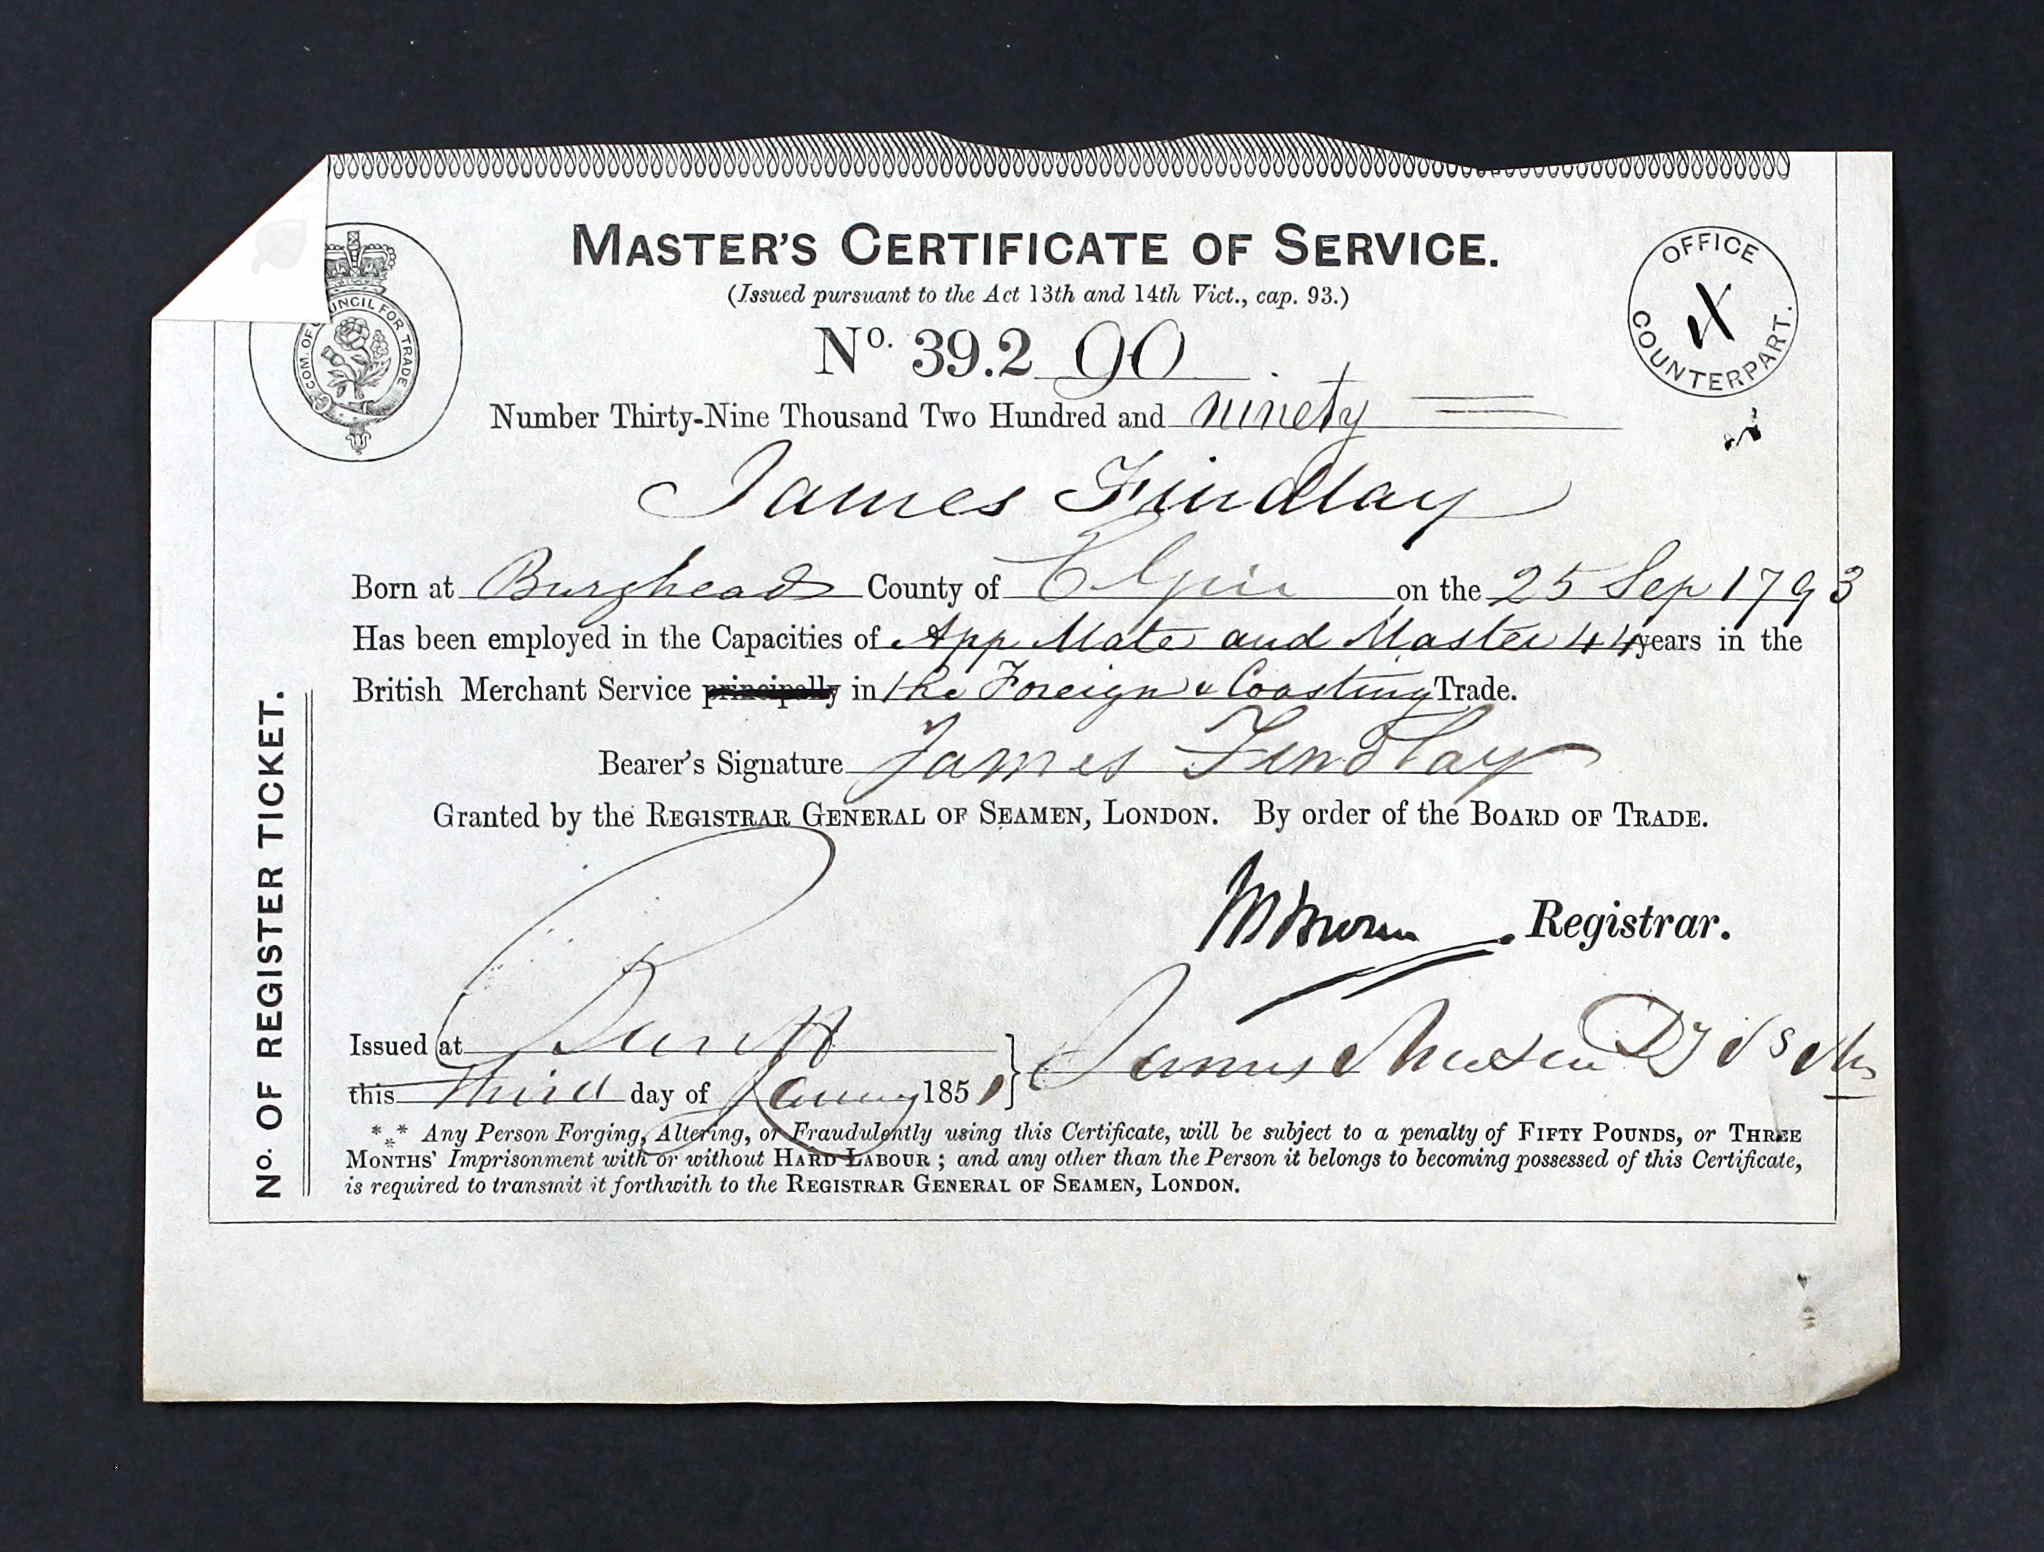 MASTER'S CERTIFICATE OF SERVICE.
(Issued pursuant to the Act 13th and 14th Vict., cap. 93.)
COM. OF COUNCIL FOR TRADE
OFFICE
COUNTERPART.
No. 39.2 90
Number Thirty-Nine Thousand Two Hundred and ninety
James Findlay
Born at Burghead County of Elgin on the 25 Sep 1793
Has been employed in the Capacities of App Mate and Master 44 years in the
British Merchant Service principally in the Foreign & Coasting Trade.
Bearer's Signature James Findlay
Granted by the REGISTRAR GENERAL OF SEAMEN, LONDON. By order of the BOARD OF TRADE.
Registrar.
Issued at Banff
this third day of January 1851 James
*** Any Person Forging, Altering, or Fraudulently using this Certificate, will be subject to a penalty of FIFTY POUNDS, or THREE
MONTHS' Imprisonment with or without HARD LABOUR ; and any other than the Person it belongs to becoming possessed of this Certificate,
is required to transmit it forthwith to the REGISTRAR GENERAL OF SEAMEN, LONDON.
No. OF REGISTER TICKET.